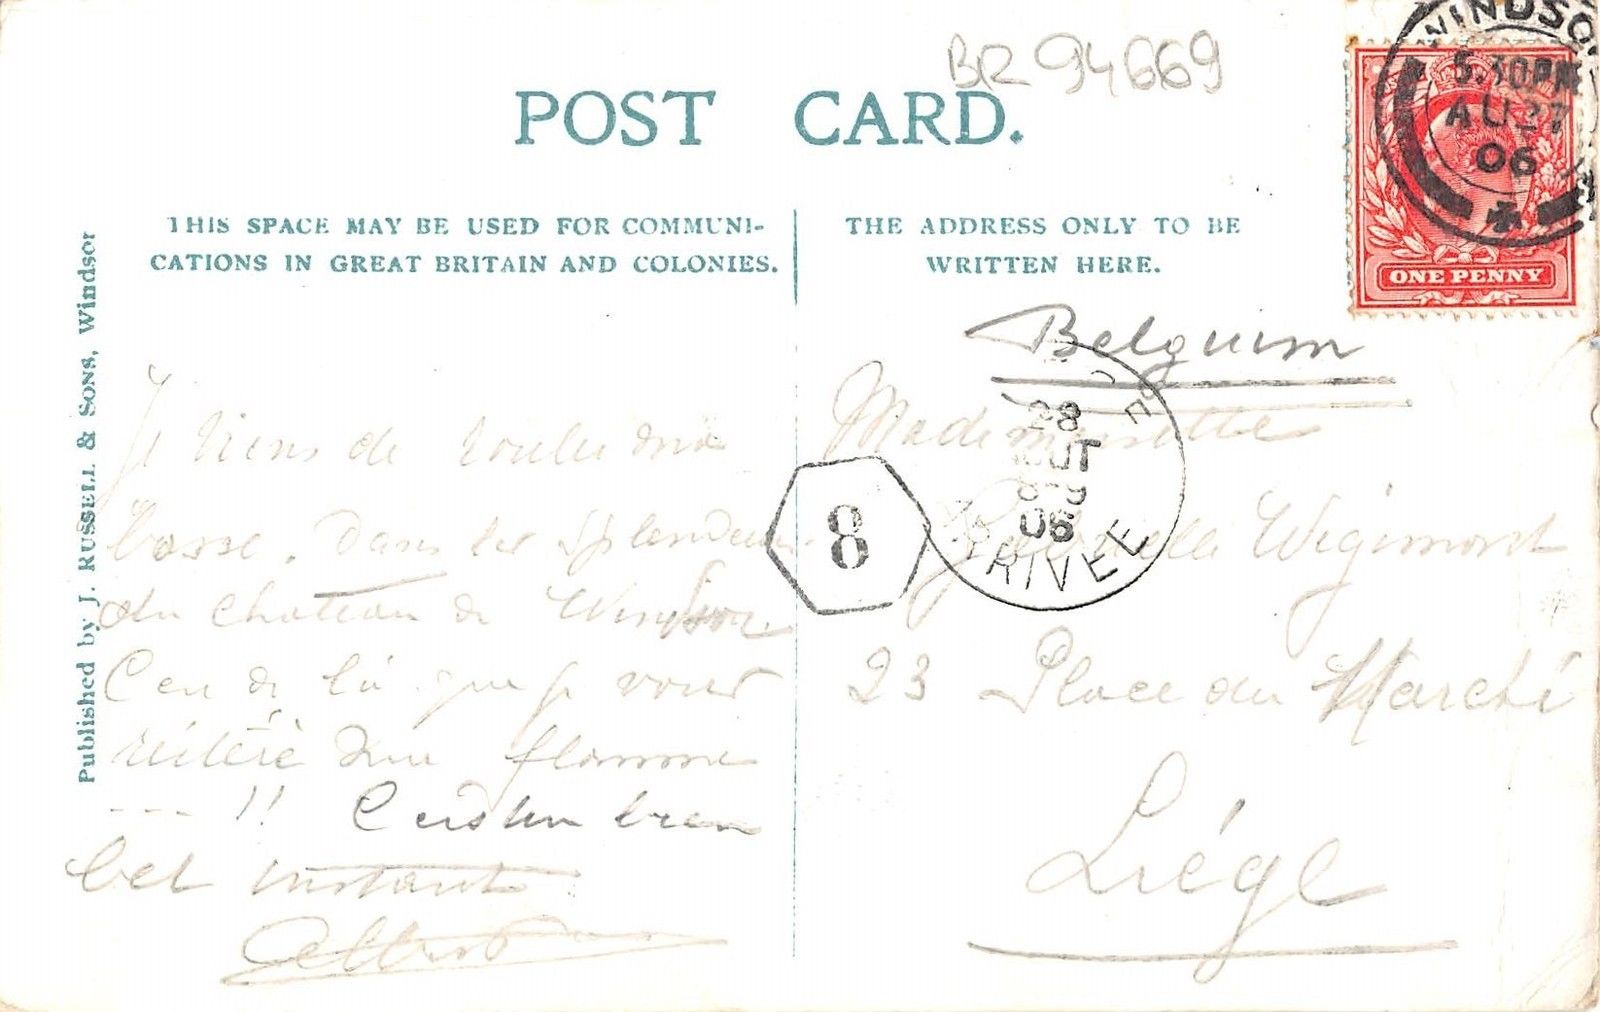 BR 94669
POST CARD.
WINDSOR
5.30PM
AU 27
06
ONE PENNY
THIS SPACE MAY BE USED FOR COMMUNI-
CATIONS IN GREAT BRITAIN AND COLONIES.
THE ADDRESS ONLY TO BE
WRITTEN HERE.
Published by J. RUSSELL & SONS, Windsor
Je viens de rouler ma
bosse. Dans les splendeurs
du chateau de Windsor
C'en de là que je vous
réitère ma flamme
--- !! C'est un bien
bel instant
Albert
Belgium
Mademoiselle
Gabrielle Wigimont
23 Place du Marché
Liége
28
OUT
06
ARRIVEE
8